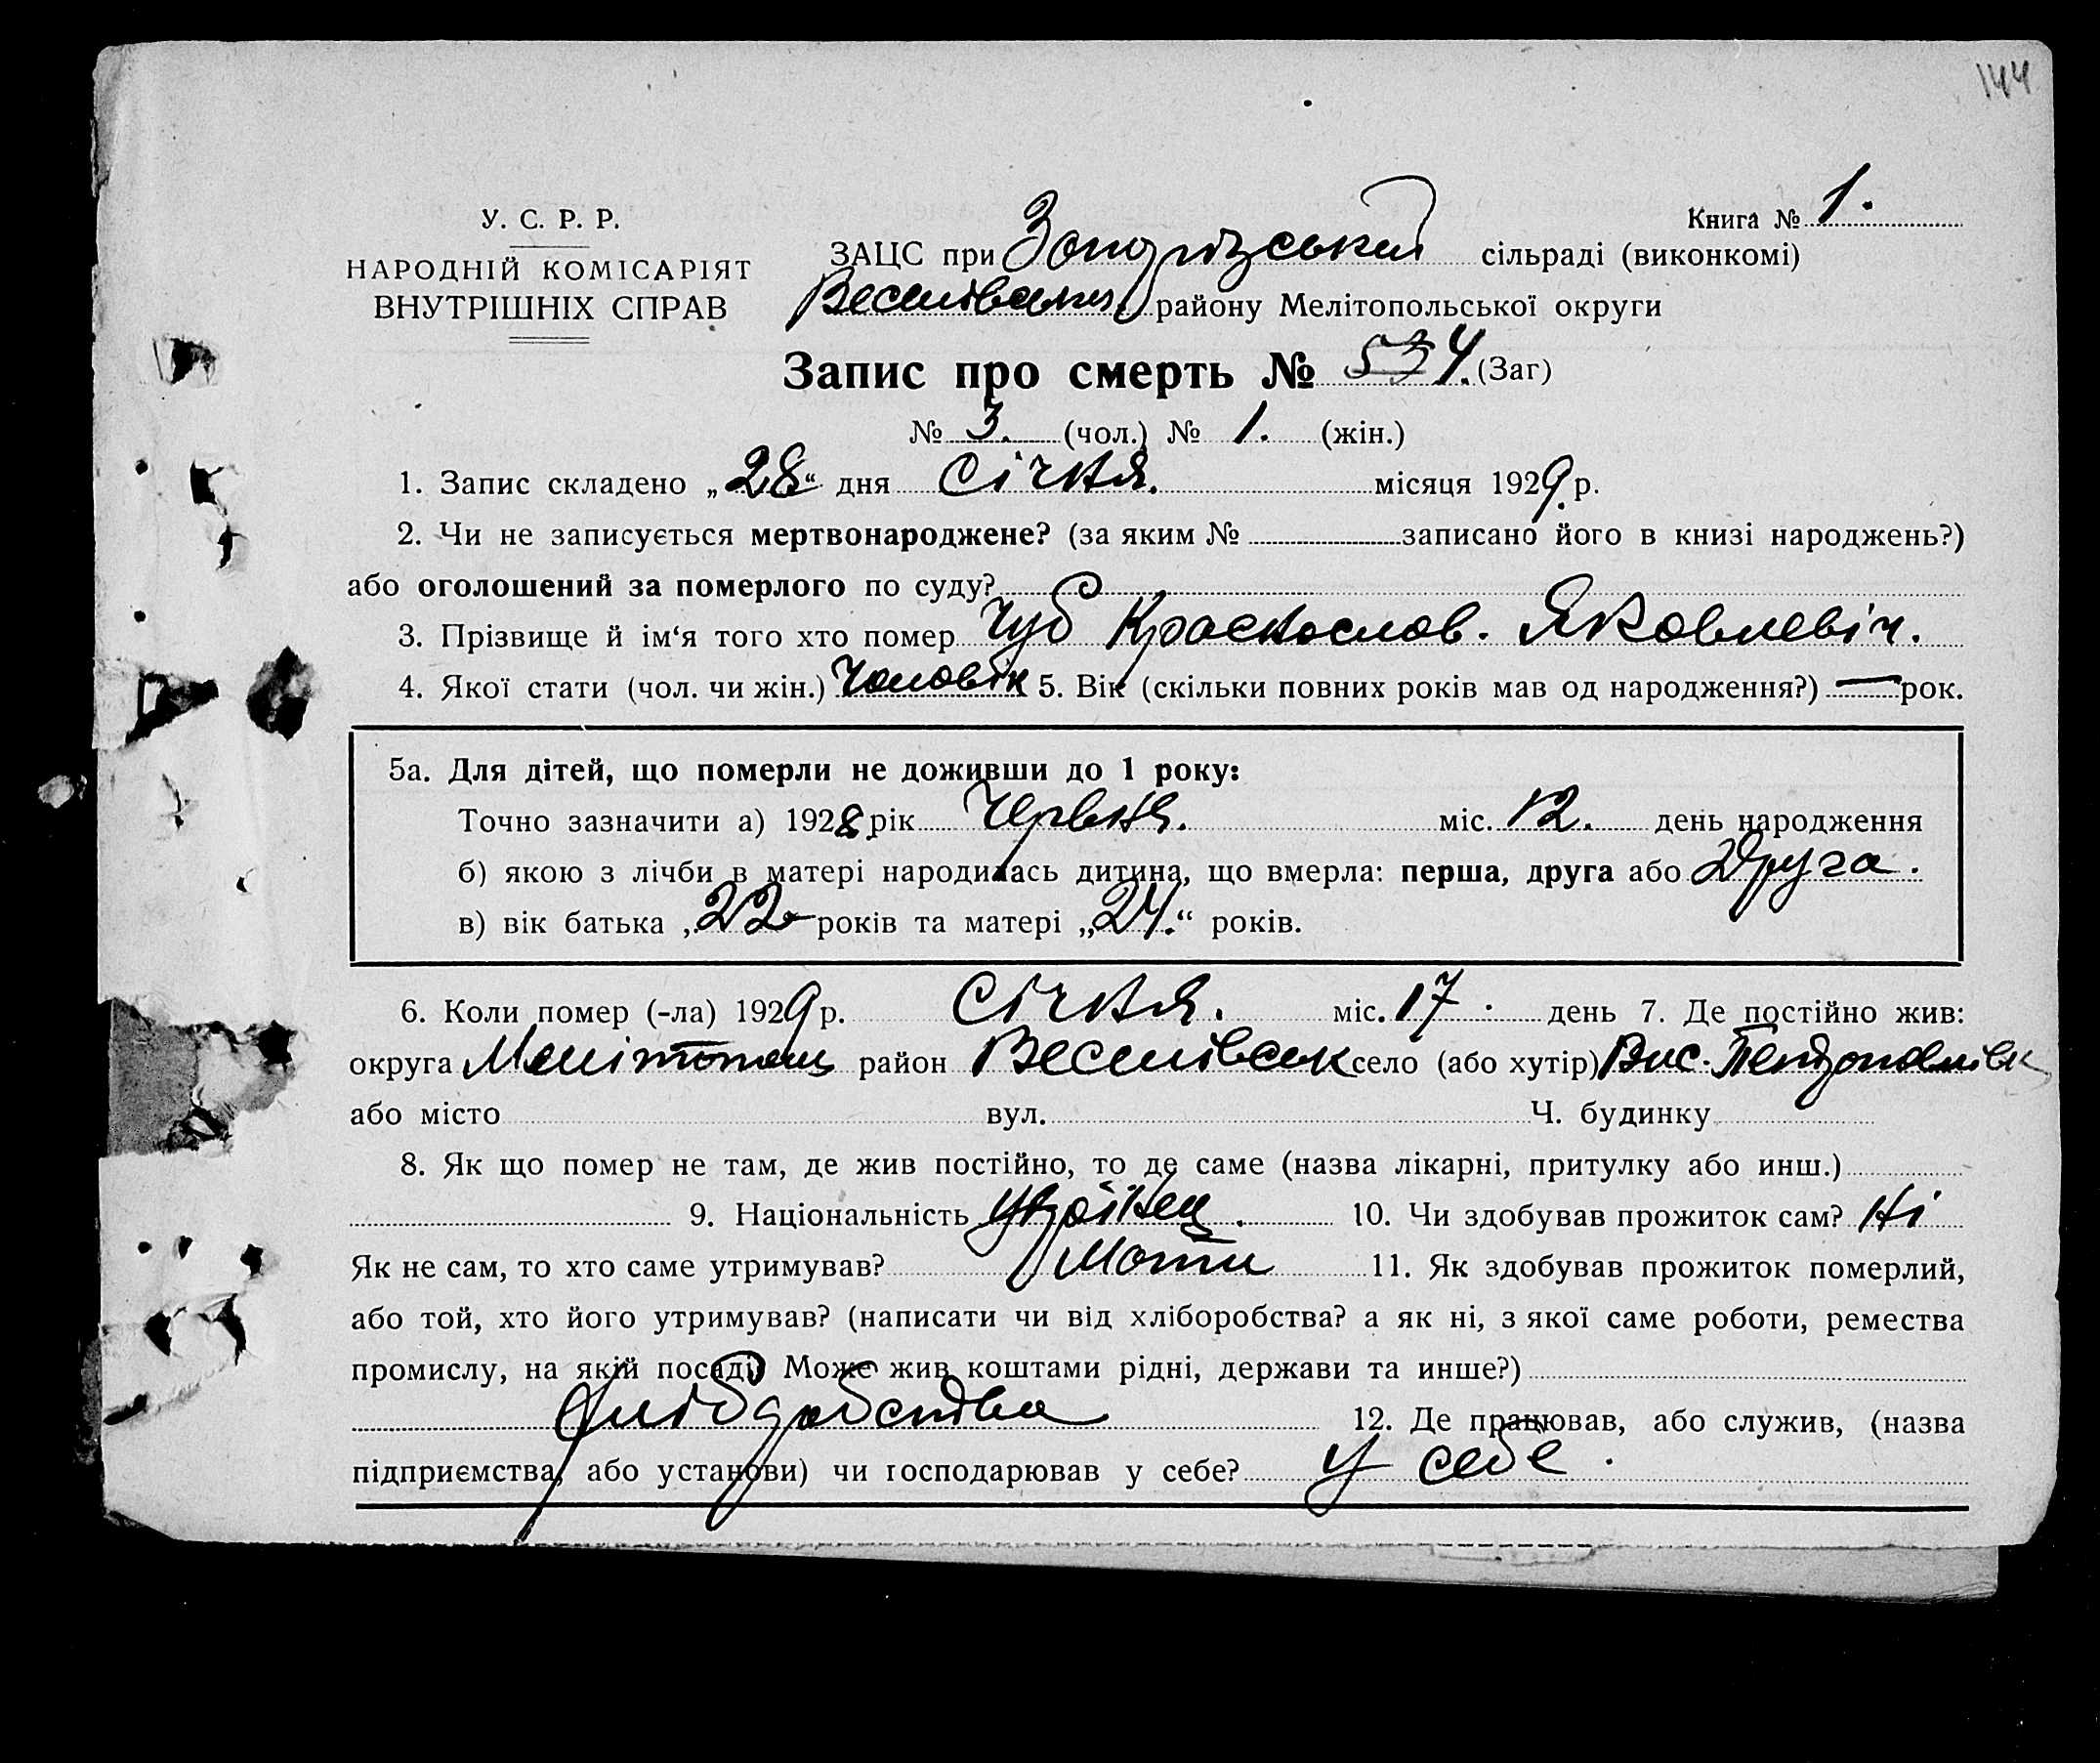 144
Книга № 1.
У. С. Р. Р.
НАРОДНІЙ КОМІСАРІЯТ
ВНУТРІШНІХ СПРАВ
ЗАЦС при Запорізській сільраді (виконкомі)
Веселівськ. району Мелітопольської округи
Запис про смерть № 4. (Заг)
№ 3. (чол.) № 1. (жін.)
1. Запис складено „28“ дня Січня. місяця 1929 р.
2. Чи не записується мертвонароджене? (за яким № записано його в книзі народжень?)
або оголошений за померлого по суду?
3. Прізвище й ім‘я того хто помер Чуб Краснослав. Яковлевіч.
4. Якої стати (чол. чи жін.) Чоловік 5. Вік (скільки повних років мав од народження?) — рок.
5а. Для дітей, що померли не доживши до 1 року:
Точно зазначити а) 1928 рік Червня. міс. 12. день народження
б) якою з лічби в матері народилась дитина, що вмерла: перша, друга або Друга.
в) вік батька „22 років та матері „24.“ років.
6. Коли помер (-ла) 1929 р. Січня. міс. 17. день 7. Де постійно жив:
округа Мелітопол район Веселівськ село (або хутір) Вис.
або місто вул. Ч. будинку
8. Як що помер не там, де жив постійно, то де саме (назва лікарні, притулку або инш.)
9. Національність Украінец. 10. Чи здобував прожиток сам? Ні
Як не сам, то хто саме утримував? Мати 11. Як здобував прожиток померлий,
або той, хто його утримував? (написати чи від хліборобства? а як ні, з якої саме роботи, ремества
промислу, на якій посаді? Може жив коштами рідні, держави та инше?)
Хліборобства 12. Де працював, або служив, (назва
підприємства, або установи) чи господарював у себе? У себе.